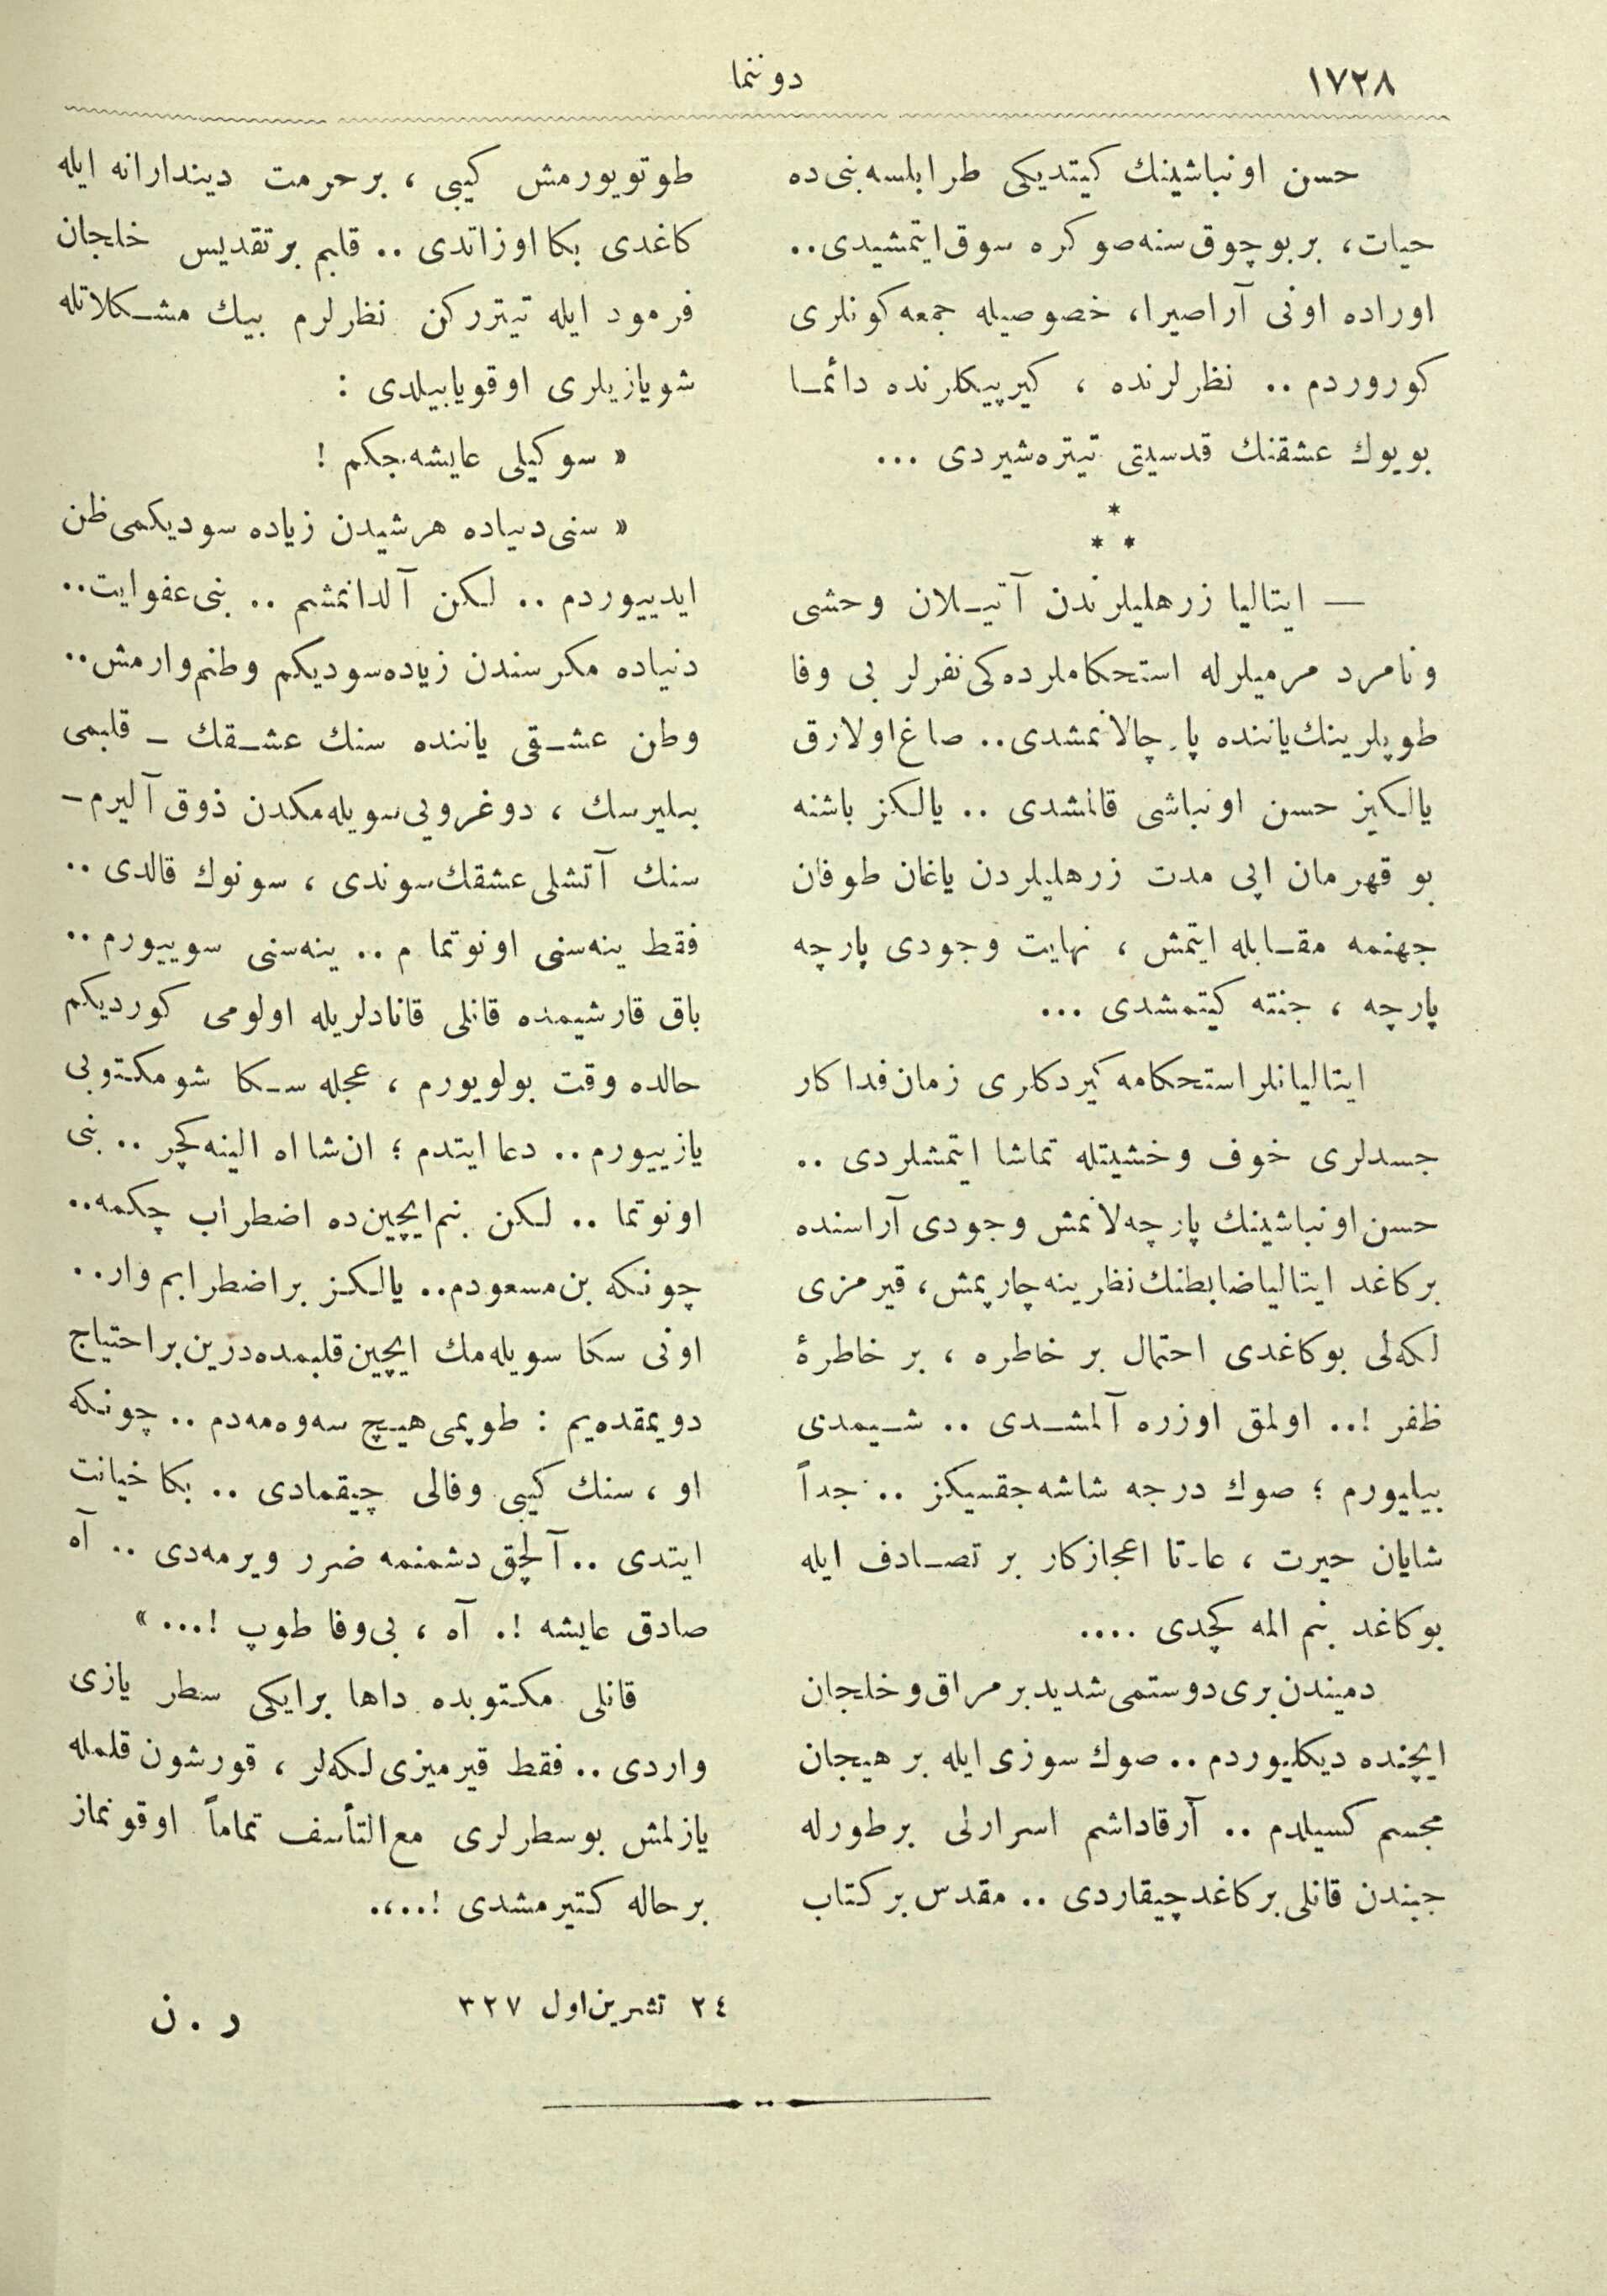 ١٧٢٨
دوننما
حسن اونباشينك كيتديكى طرابلسه بنى ده
حيات، بر بوچوق سنه صوكره سوق ايتمشيدى..
اوراده اونى آراصيرا، خصوصيله جمعه كونلرى
كوروردم .. نظرلرنده ، كيرپيكلرنده دائما
بويوك عشقنك قدسيتى تيتره شيردى ...
*
* *
— ايتاليا زرهليلرندن آتيلان وحشى
و نامرد مرميلرله استحكاملرده كى نفرلر بى وفا
طوپلرينك ياننده پارچالانمشدى.. صاغ اولارق
يالكيز حسن اونباشى قالمشدى .. يالكز باشنه
بو قهرمان اپى مدت زرهليلردن ياغان طوفان
جهنمه مقابله ايتمش ، نهايت وجودى پارچه
پارچه ، جنته كيتمشدى ...
ايتاليانلر استحكامه كيردكلرى زمان فداكار
جسدلرى خوف و خشيتله تماشا ايتمشلردى ..
حسن اونباشينك پارچه لانمش وجودى آراسنده
بر كاغد ايتاليا ضابطنك نظرينه چارپمش، قيرمزى
لكه لى بو كاغدى احتمال بر خاطره ، بر خاطرۀ
ظفر !.. اولمق اوزره آلمشدى .. شيمدى
بيليورم ؛ صوك درجه شاشه جقسيكز .. جداً
شايان حيرت ، عادتا اعجازكار بر تصادف ايله
بو كاغد بنم المه كچدى ....
دميندن برى دوستمى شديد بر مراق و خلجان
ايچنده ديكليوردم .. صوك سوزى ايله بر هيجان
مجسم كسيلدم .. آرقاداشم اسرارلى بر طورله
جبندن قانلى بر كاغد چيقاردى .. مقدس بر كتاب
طوتويورمش كيبى ، بر حرمت ديندارانه ايله
كاغدى بكا اوزاتدى .. قلبم بر تقديس خلجان
فرمود ايله تيتررکن نظرلرم بيك مشكلاتله
شو يازيلرى اوقويابيلدى :
« سوكيلى عايشه جكم !
« سنى دنياده هر شيدن زياده سوديكمى ظن
ايدييوردم .. لكن آلدانمشم .. بنى عفو ايت..
دنياده مكر سندن زياده سوديكم وطنم وارمش..
وطن عشقى ياننده سنك عشقك – قلبمى
بيليرسك ، دوغرويى سويله مكدن ذوق آليرم –
سنك آتشلى عشقك سوندى ، سونوك قالدى ..
فقط ينه سنى اونوتمام .. ينه سنى سوييورم ..
باق قارشيمده قانلى قانادلريله اولومى كورديكم
حالده وقت بولويورم ، عجله سكا شو مكتوبى
يازييورم .. دعا ايتدم ؛ ان شا اه الينه كچر .. بنى
اونوتما .. لكن بنم ايچين ده اضطراب چكمه..
چونكه بن مسعودم.. يالكز بر اضطرابم وار..
اونى سكا سويله مك ايچين قلبمده درين بر احتياج
دويمقده يم : طوپمى هيچ سه وه مه دم .. چونكه
او ، سنك كيبى وفالى چيقمادى .. بكا خيانت
ايتدى .. آلچق دشمنمه ضرر ويرمه دى .. آه
صادق عايشه !. آه ، بى وفا طوپ !... »
قانلى مكتوبده داها بر ايكى سطر يازى
واردى .. فقط قيرميزى لكه لر ، قورشون قلمله
يازلمش بو سطرلرى مع التأسف تماماً اوقونماز
بر حاله كتيرمشدى !....
٢٤ تشرين اول ٣٢٧
ر . ن